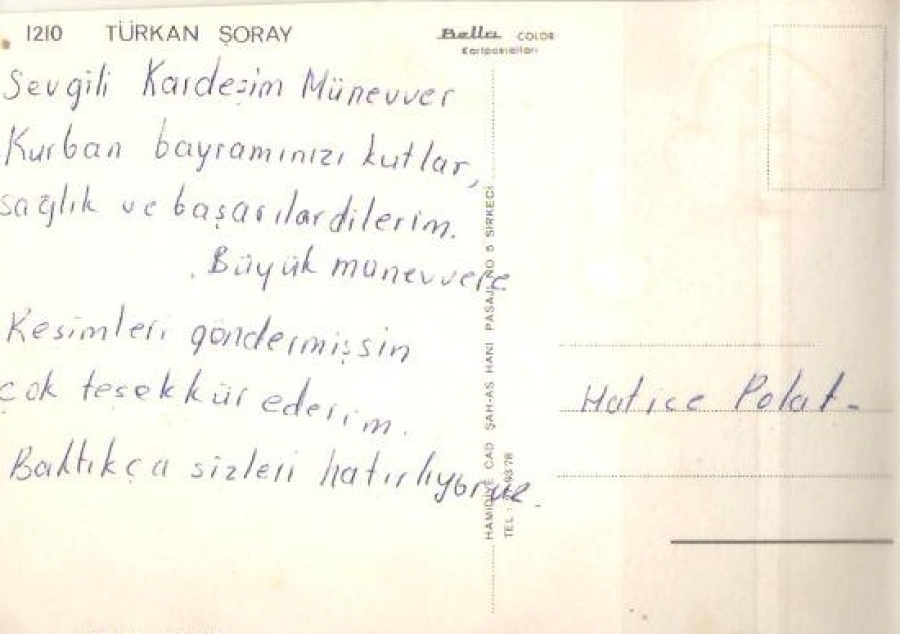 1210 TÜRKAN ŞORAY
Bella COLOR
Kartpostalları
Sevgili Kardeşim Münevver
Kurban bayramınızı kutlar,
sağlık ve başarılar dilerim.
Büyük münevvere
Resimleri göndermişsin
çok teşekkür ederim.
Baktıkça sizleri hatırlıyoruz.
HAMİDİYE CAD ŞAH-AS HANI PASAJI NO 5 SİRKECİ
TEL : 93 78
Hatice Polat-